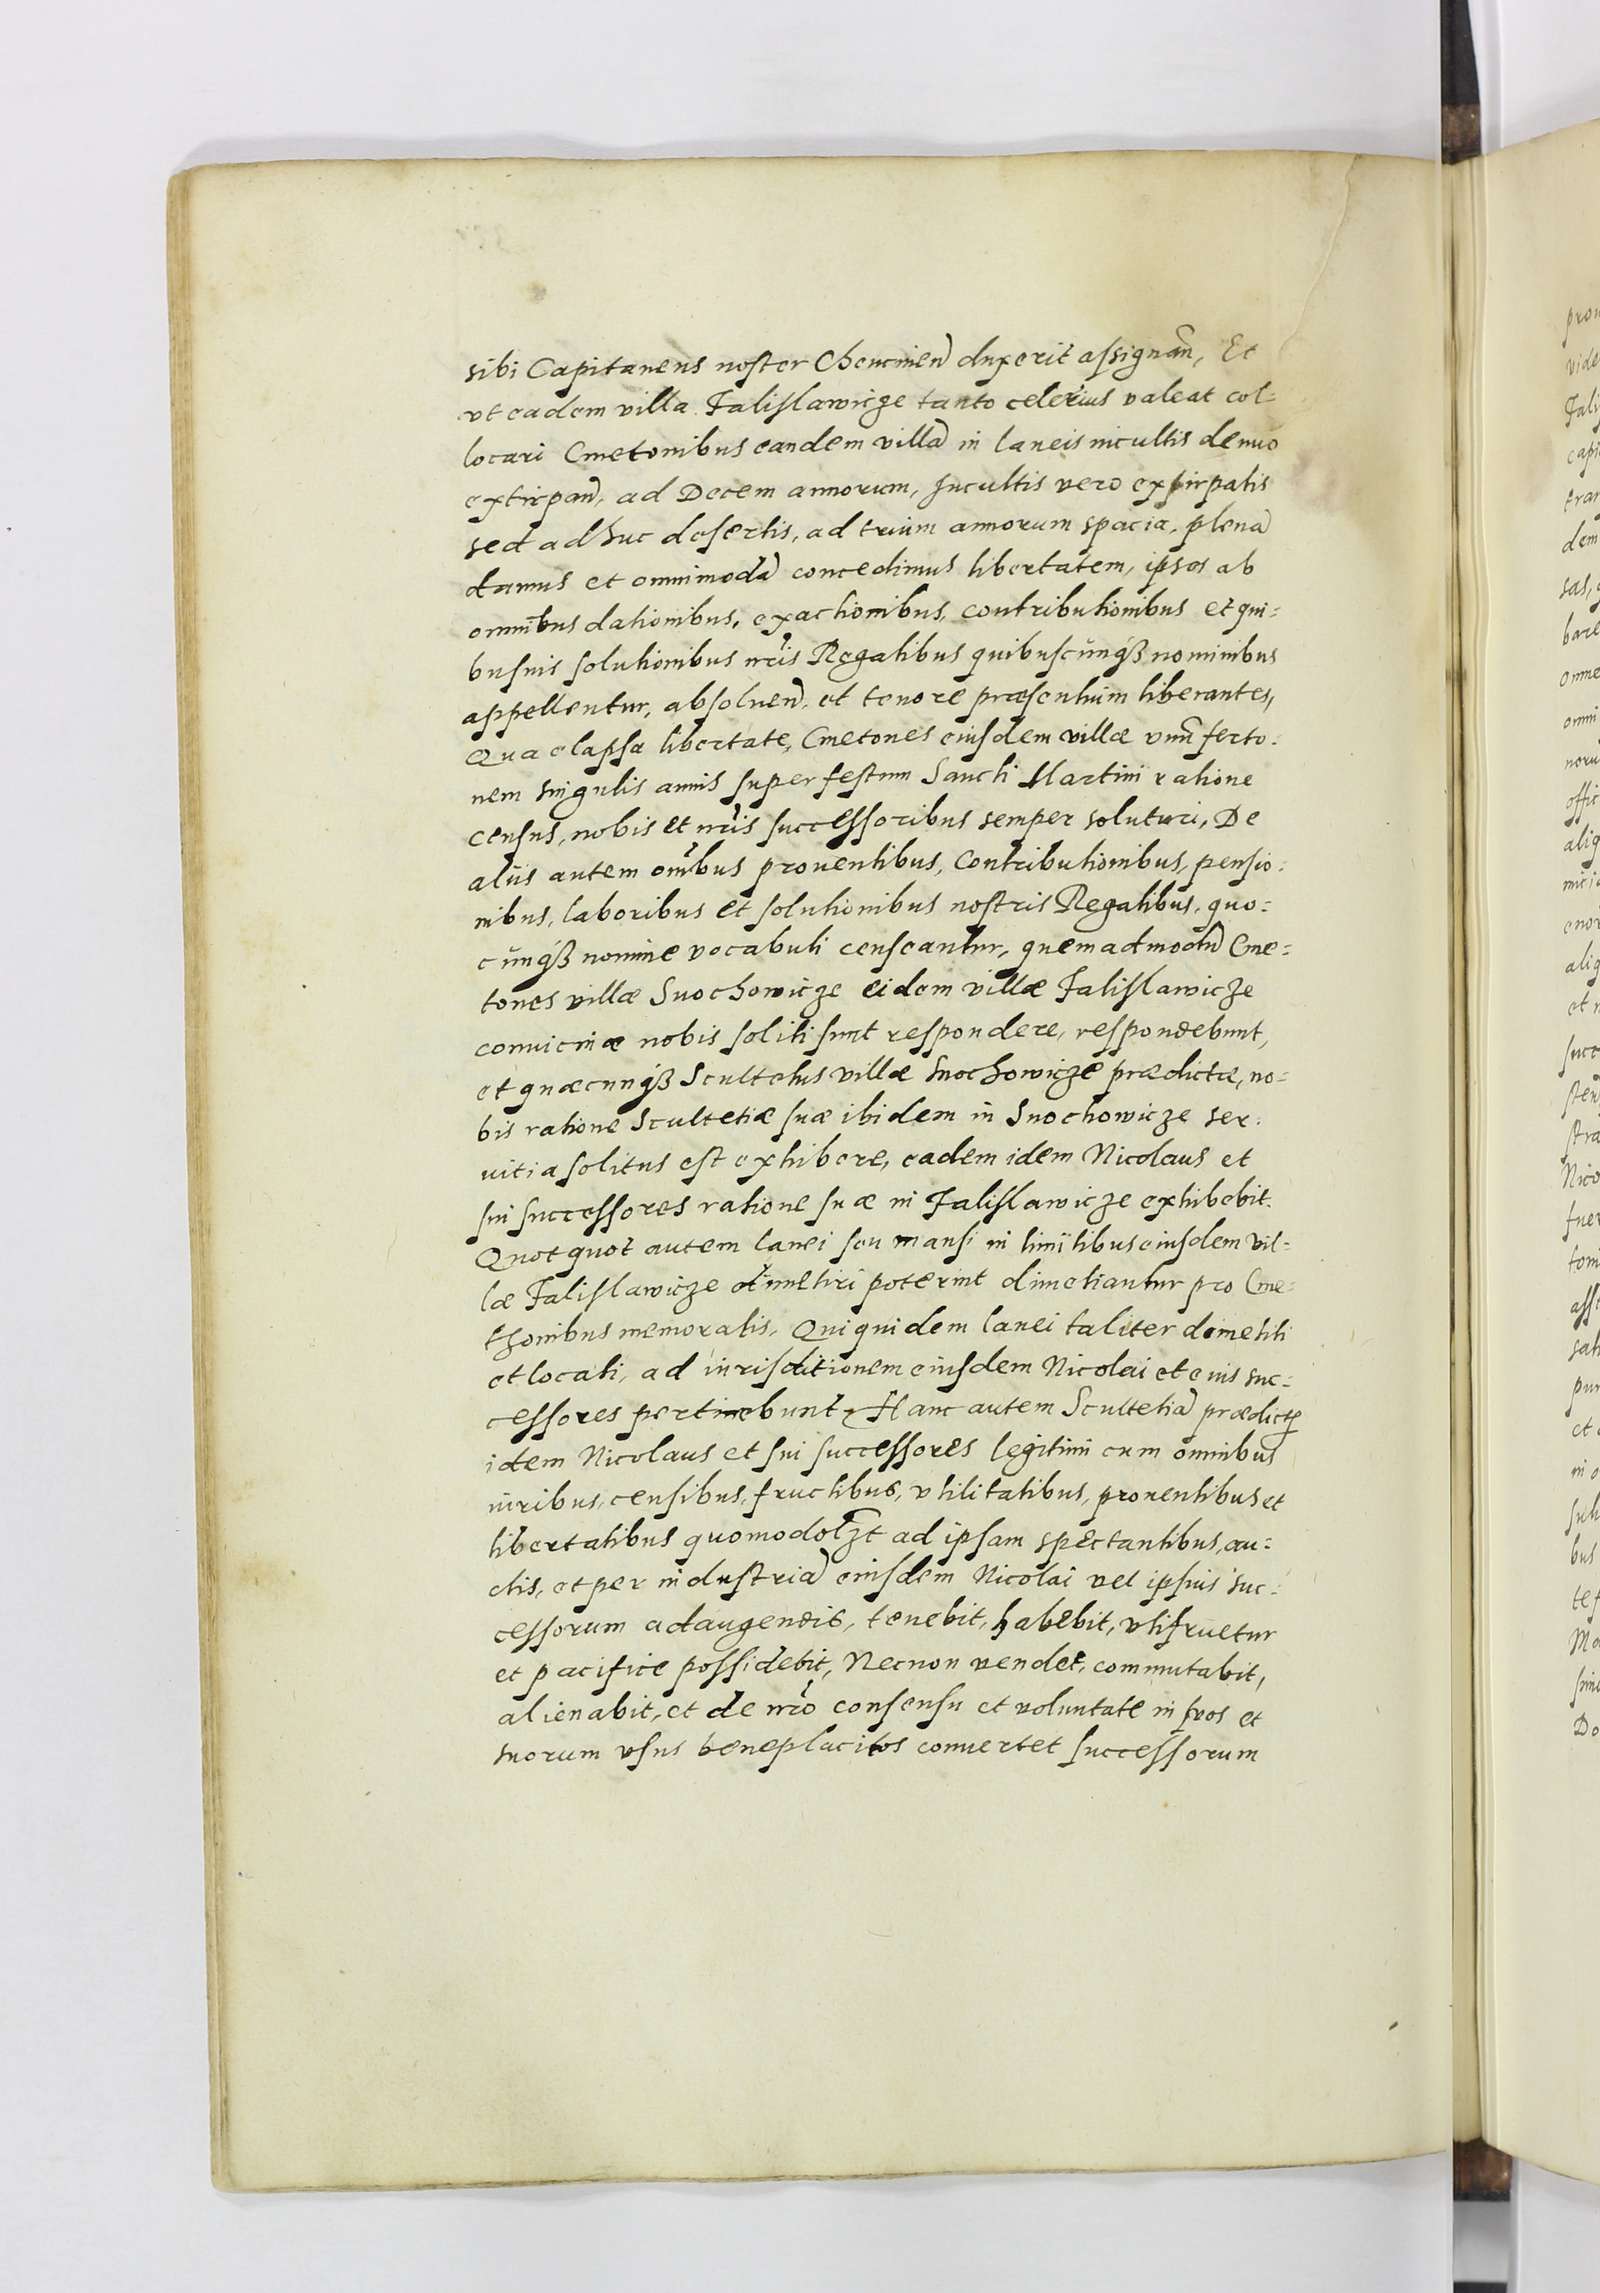 sibi Capitaneus noster Chencinen̄ duxerit assignan̄, Et
vt eadem villa Falislawicze tanto celerius valeat col-
locari Cmetonibus eandem villā in laneis incultis denuo
extirpan̄, ad Decem annorum, Incultis vero extirpatis
sed adhuc desertis, ad trium annorum spacia, plenā
damus et omnimodā concedimus libertatem, ipsos ab
omnibus dationibus, exactionibus, contributionibus et qui-
busuis solutionibus nr̄is Regalibus quibuscūnqȝ nominibus
appellentur, absoluen̄, et tenore præsentium liberantes,
Qua elapsa libertate, Cmetones eiusdem villæ vnū ferto-
nem singulis annis super festum Sancti Martini ratione
census, nobis et nr̄is successoribus semper soluturi, De
aliis autem om̄ibus prouentibus, Contributionibus, pensio-
nibus, laboribus et solutionibus nostris Regalibus, quo-
cūnqȝ nomine vocabuli censeantur, quemadmodū Cme-
tones villæ Snochowicze eidem villæ Falislawicze
conuicinæ nobis soliti sunt respondere, respondebunt,
et quæcunqȝ Scultetus villæ Snochowicze prædictæ, no-
bis ratione Scultetiæ suæ ibidem in Snochowicze ser-
uitia solitus est exhibere, eadem idem Nicolaus et
sui successores ratione suæ in Falislawicze exhibebit.
Quotquot autem lanei seu mansi in limitibus eiusdem vil-
læ Falislawicze dimetiri poterint dimetiantur pro Cme-
thonibus memoratis. Qui quidem lanei taliter dimetiti
et locati, ad iurisditionem eiusdem Nicolai et eius suc-
cessores pertinebunt, Hanc autem Scultetiā prædictā
idem Nicolaus et sui successores legitimi cum omnibus
iuribus, censibus, fructibus, vtilitatibus, prouentibus et
libertatibus quomodolȝt ad ipsam spectantibus, au-
ctis, et per industriā eiusdem Nicolai vel ipsius suc-
cessorum adaugendis, tenebit, habebit, vtifruetur
et pacifice possidebit, Necnon vendet, commutabit,
alienabit, et de nr̄o consensu et voluntate in suos et
suorum vsus beneplacitos conuertet successorum